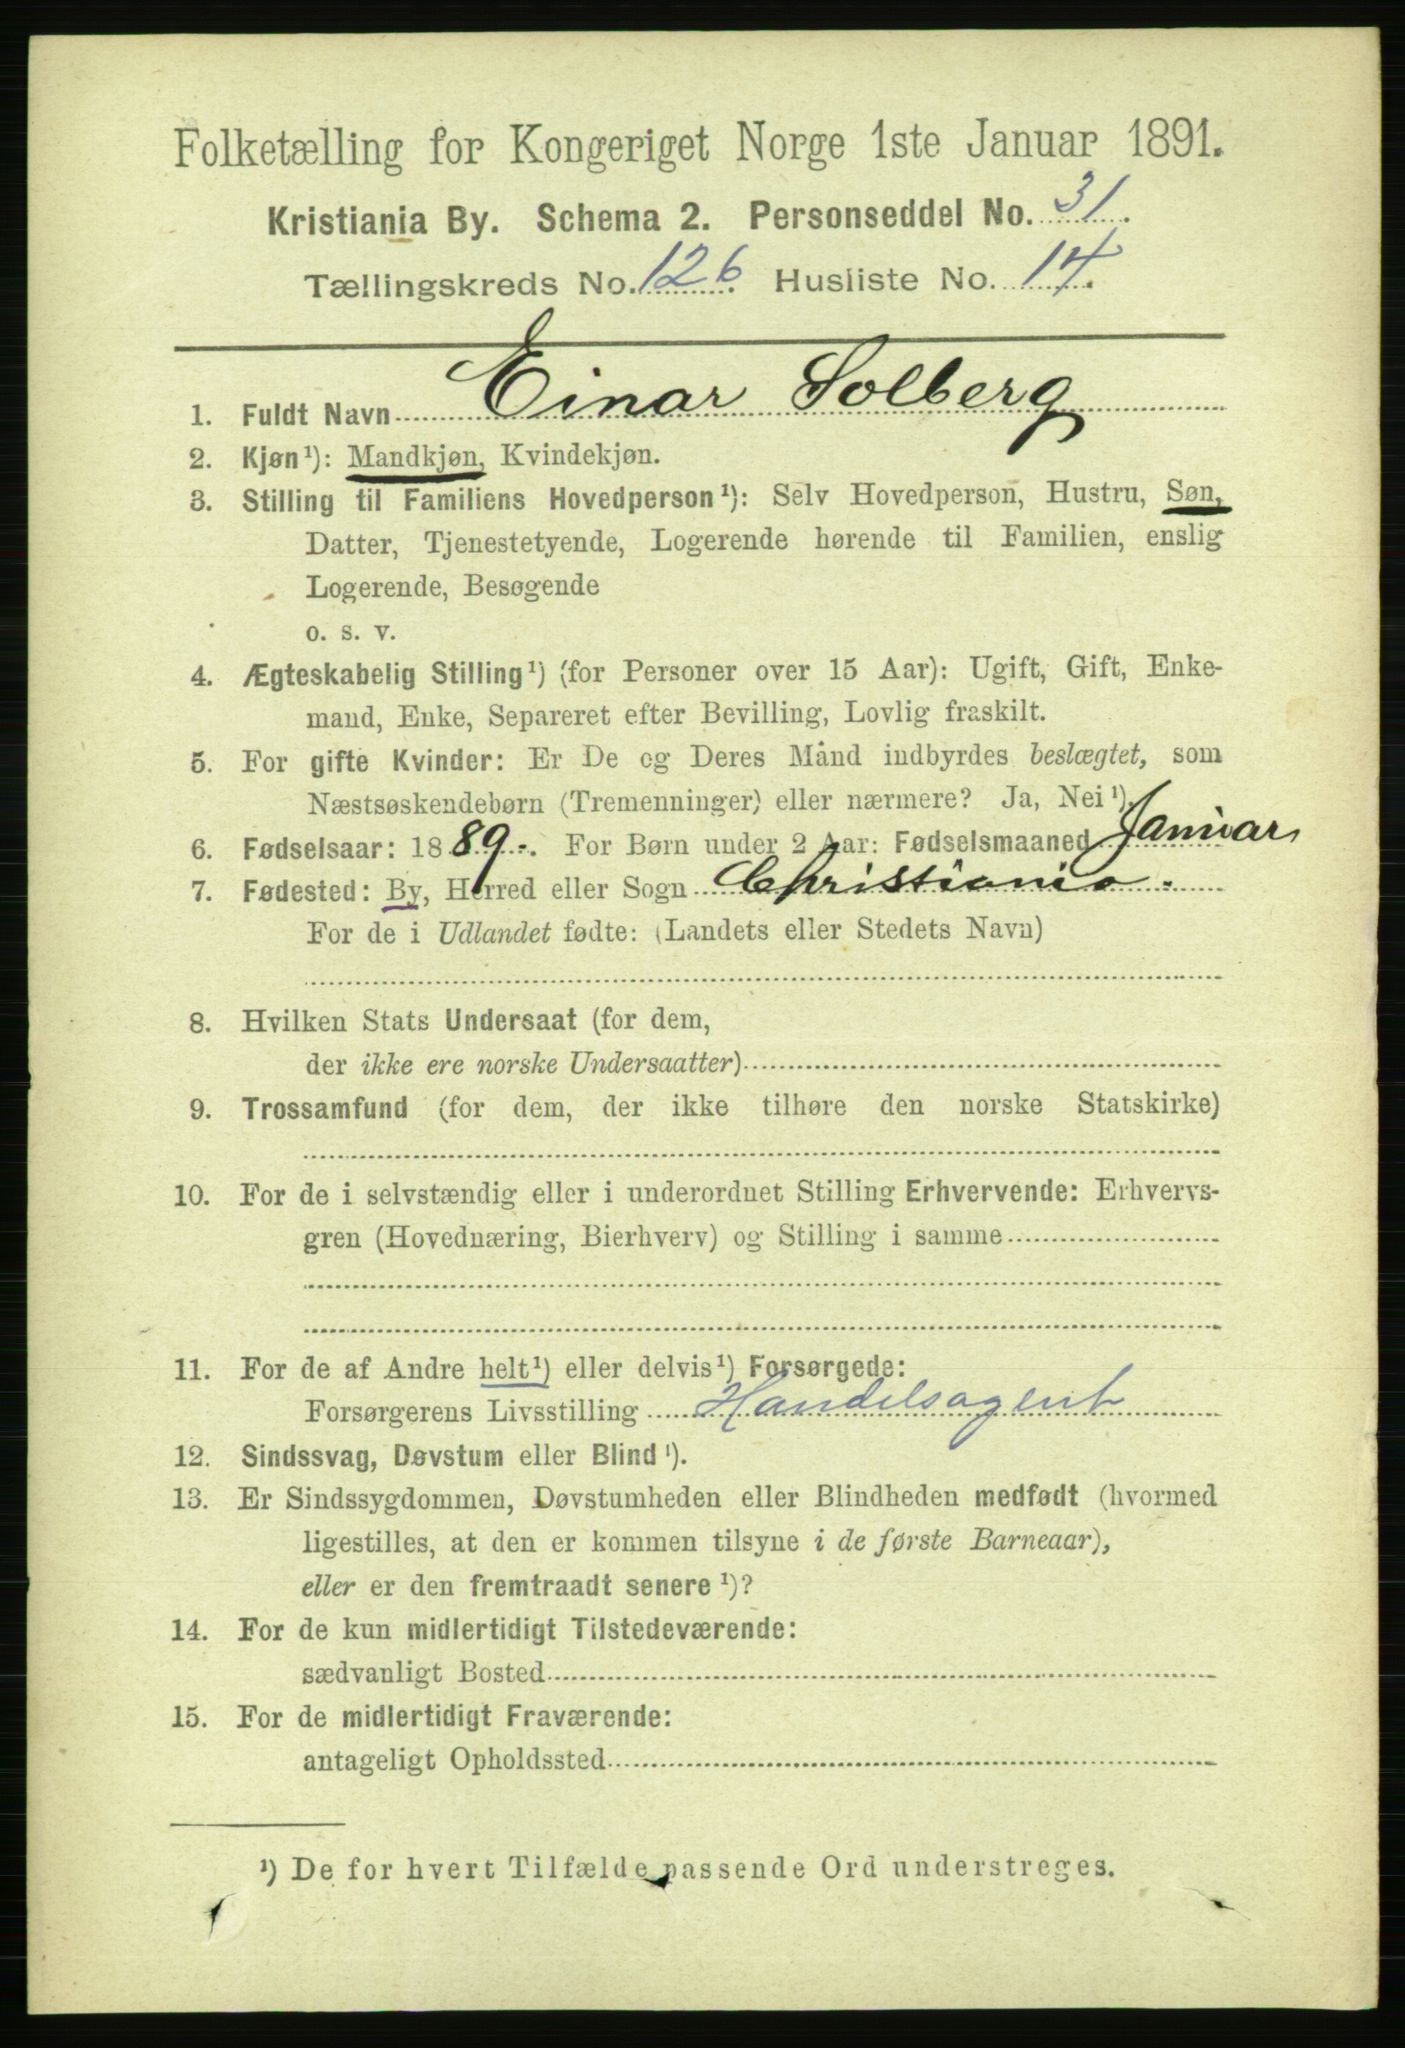 Folketælling for Kongeriget Norge 1ste Januar 1891.
Kristiania By. Schema 2. Personseddel No. 31.
Tællingskreds No. 126. Husliste No. 14.
1. Fuldt Navn Einar Solberg
2. Kjøn¹): Mandkjøn, Kvindekjøn.
3. Stilling til Familiens Hovedperson¹): Selv Hovedperson, Hustru, Søn,
Datter, Tjenestetyende, Logerende hørende til Familien, enslig
Logerende, Besøgende
o. s. v.
4. Ægteskabelig Stilling¹) (for Personer over 15 Aar): Ugift, Gift, Enke-
mand, Enke, Separeret efter Bevilling, Lovlig fraskilt.
5. For gifte Kvinder: Er De og Deres Mand indbyrdes beslægtet, som
Næstsøskendebørn (Tremenninger) eller nærmere? Ja, Nei¹).
6. Fødselsaar: 1889. For Børn under 2 Aar: Fødselsmaaned Januar
7. Fødested: By, Herred eller Sogn Christiania.
For de i Udlandet fødte: (Landets eller Stedets Navn)
8. Hvilken Stats Undersaat (for dem,
der ikke ere norske Undersaatter)
9. Trossamfund (for dem, der ikke tilhøre den norske Statskirke)
10. For de i selvstændig eller i underordnet Stilling Erhvervende: Erhvervs-
gren (Hovednæring, Bierhverv) og Stilling i samme
11. For de af Andre helt¹) eller delvis¹) Forsørgede:
Forsørgerens Livsstilling Handelsagent
12. Sindssvag, Døvstum eller Blind¹).
13. Er Sindssygdommen, Døvstumheden eller Blindheden medfødt (hvormed
ligestilles, at den er kommen tilsyne i de første Barneaar),
eller er den fremtraadt senere¹)?
14. For de kun midlertidigt Tilstedeværende:
sædvanligt Bosted
15. For de midlertidigt Fraværende:
antageligt Opholdssted
¹) De for hvert Tilfælde passende Ord understreges.